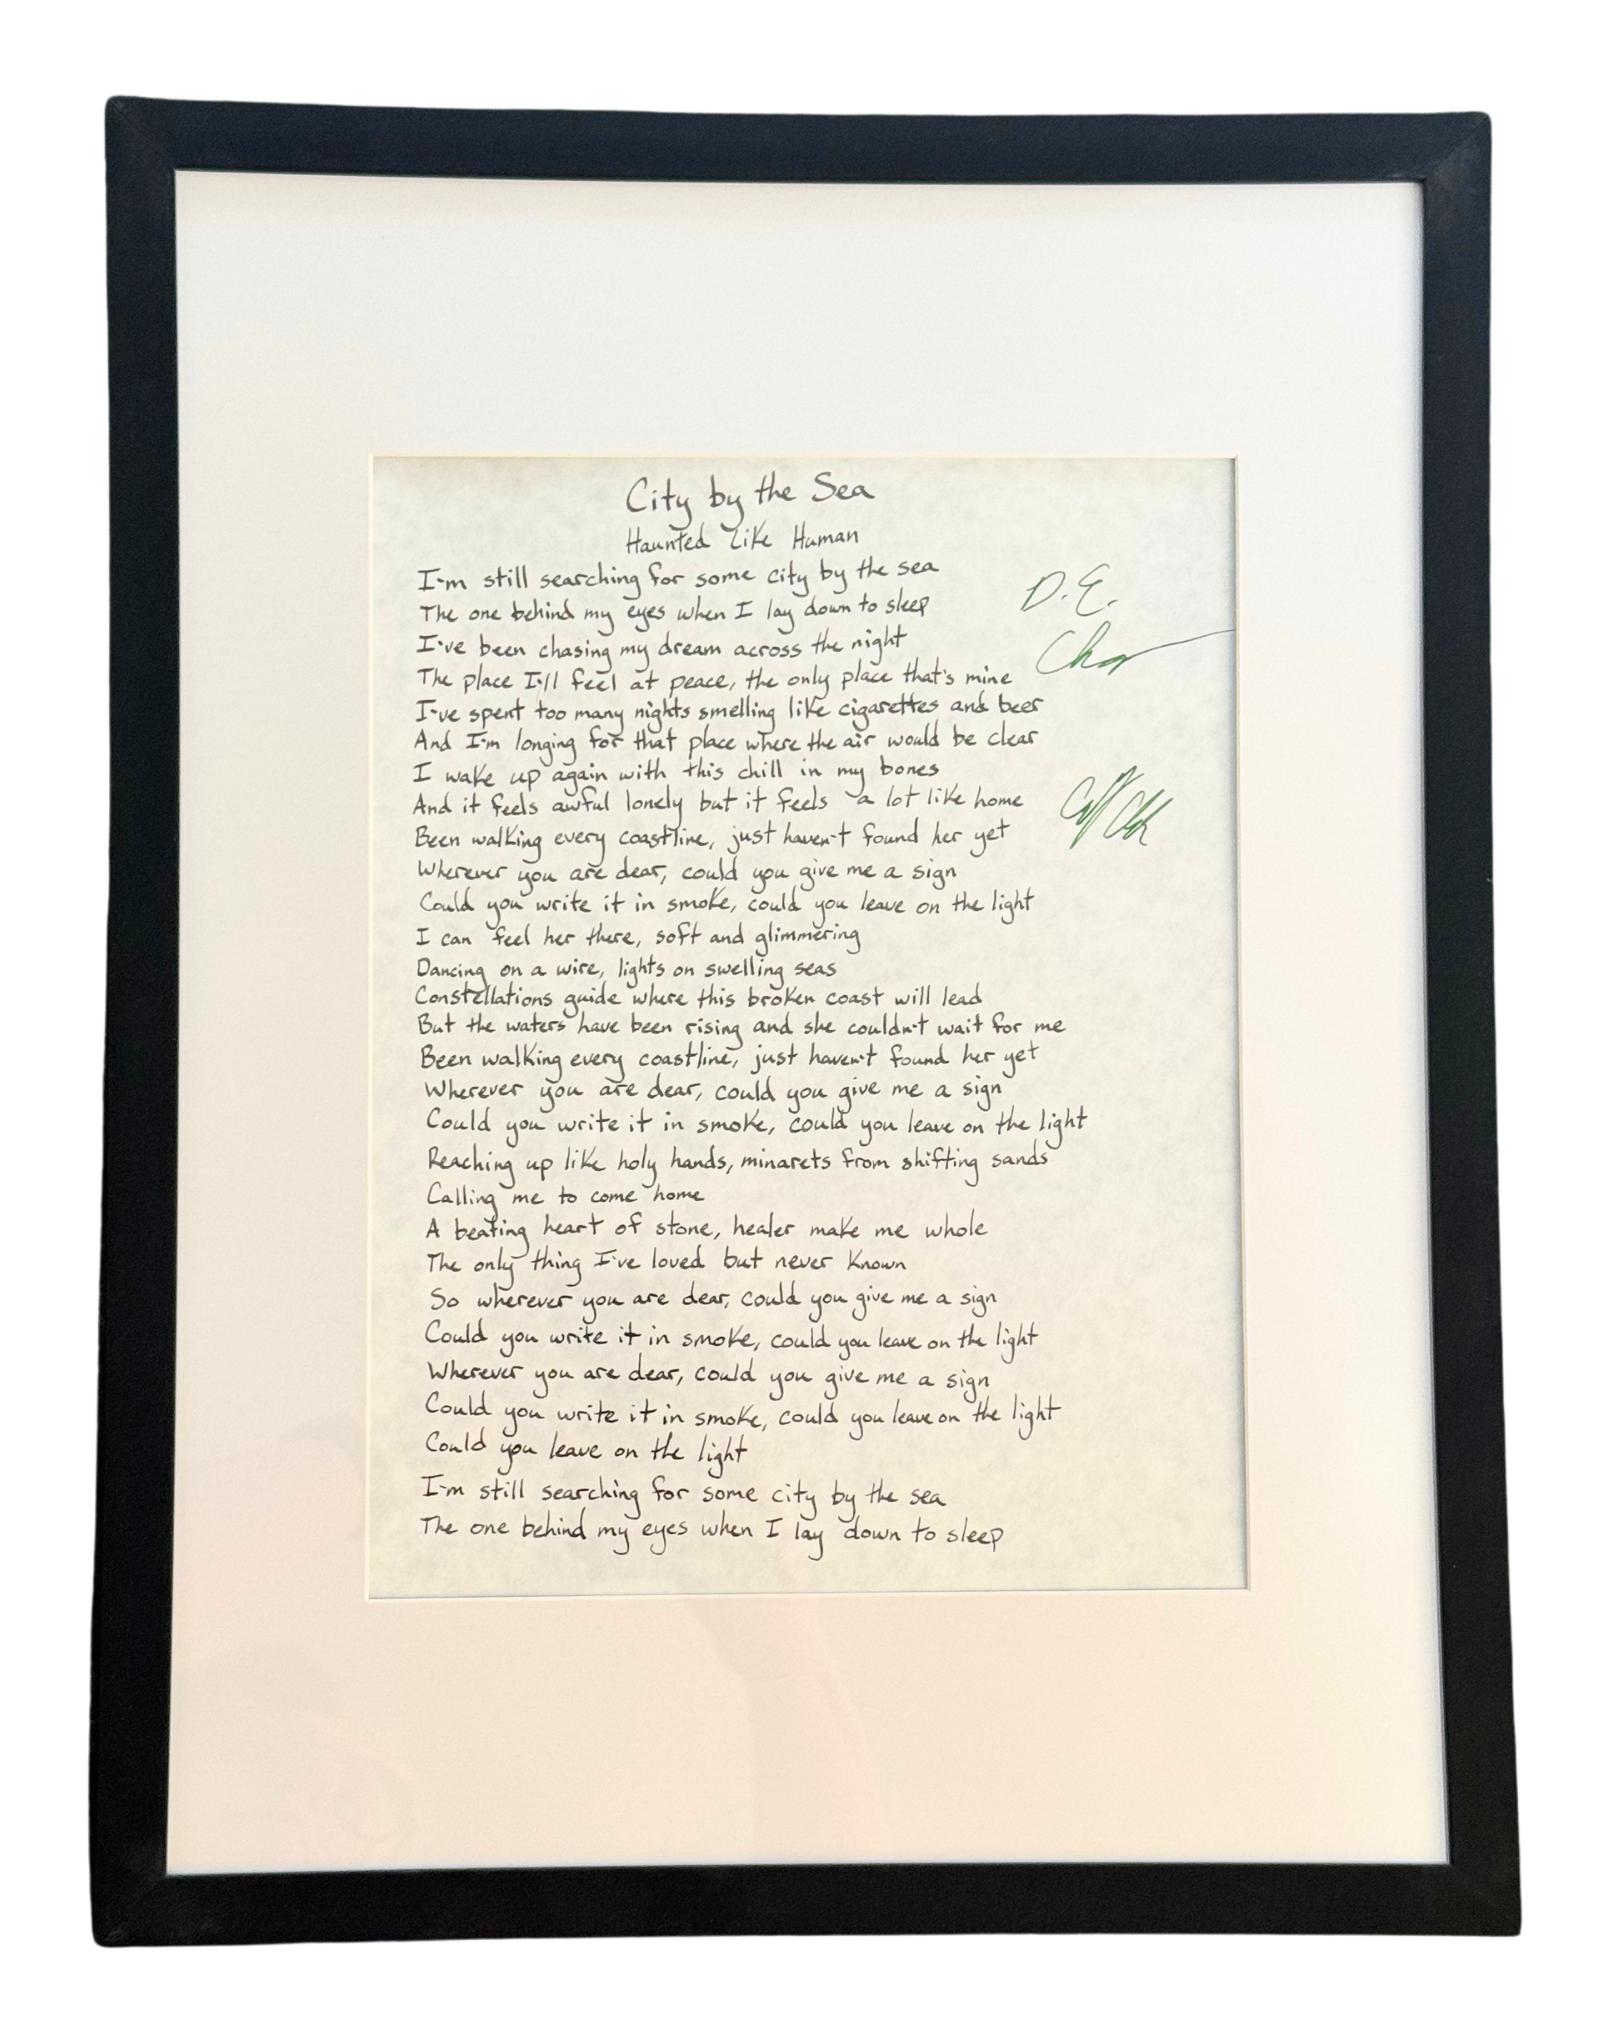 City by the Sea
Haunted Like Human
I'm still searching for some city by the sea
The one behind my eyes when I lay down to sleep
I've been chasing my dream across the night
The place I'll feel at peace, the only place that's mine
I've spent too many nights smelling like cigarettes and beer
And I'm longing for that place where the air would be clear
I wake up again with this chill in my bones
And it feels awful lonely but it feels a lot like home
Been walking every coastline, just haven't found her yet
Wherever you are dear, could you give me a sign
Could you write it in smoke, could you leave on the light
I can feel her there, soft and glimmering
Dancing on a wire, lights on swelling seas
Constellations guide where this broken coast will lead
But the waters have been rising and she couldn't wait for me
Been walking every coastline, just haven't found her yet
Wherever you are dear, could you give me a sign
Could you write it in smoke, could you leave on the light
Reaching up like holy hands, minarets from shifting sands
Calling me to come home
A beating heart of stone, healer make me whole
The only thing I've loved but never known
So wherever you are dear, could you give me a sign
Could you write it in smoke, could you leave on the light
Wherever you are dear, could you give me a sign
Could you write it in smoke, could you leave on the light
Could you leave on the light
I'm still searching for some city by the sea
The one behind my eyes when I lay down to sleep
D.E.